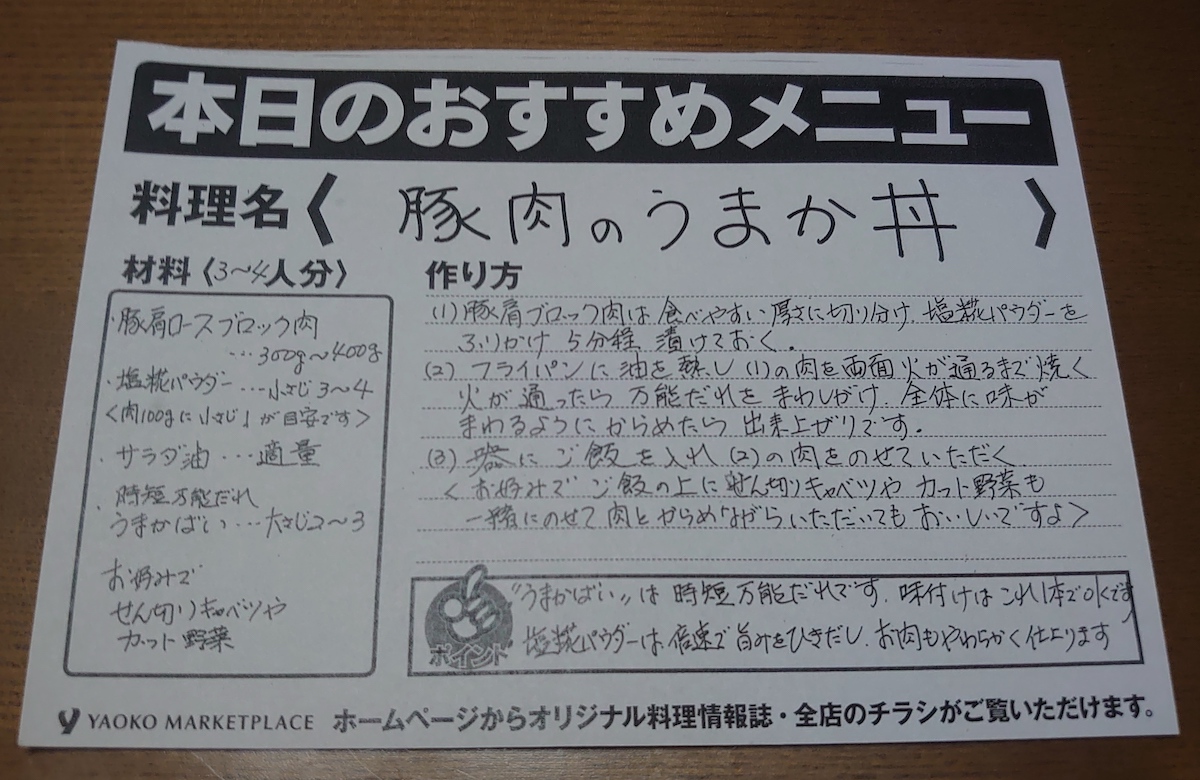 本日のおすすめメニュー
料理名〈 豚肉のうまか丼 〉
材料〈3〜4人分〉
・豚肩ロースブロック肉
…300g〜400g
・塩糀パウダー…小さじ3〜4
<肉100gに小さじ1が目安です>
・サラダ油…適量
・時短万能だれ
うまかばい…大さじ2〜3
お好みで
せん切りキャベツや
カット野菜
作り方
(1)豚肩ブロック肉は食べやすい厚さに切り分け、塩糀パウダーを
ふりかけ 5分程 漬けておく。
(2)フライパンに油を熱し(1)の肉を両面火が通るまで焼く
火が通ったら 万能だれを まわしがけ、全体に味が
まわるように からめたら 出来上がりです。
(3)器に ご飯を入れ(2)の肉をのせていただく
<お好みで ご飯の上に せん切りキャベツや カット野菜も
一緒にのせて 肉とからめながらいただいても おいしいですよ>
ポイント
"うまかばい"は 時短万能だれです、味付けは これ1本でOKです
塩糀パウダーは、倍速で旨みをひきだし、お肉もやわらかく仕上ります
YAOKO MARKETPLACE ホームページからオリジナル料理情報誌・全店のチラシがご覧いただけます。